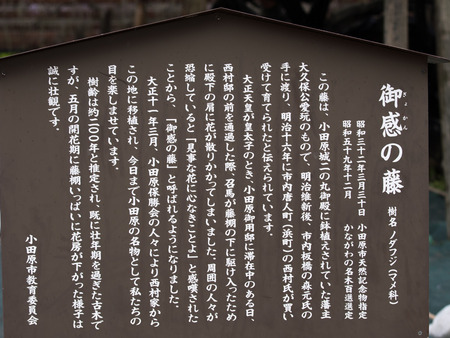 御感の藤
ぎょかん
樹名 ノダフジ(マメ科)
昭和三十二年三月三十日 小田原市天然記念物指定
昭和五十九年十二月 かながわの名木百選選定
この藤は、小田原城二の丸御殿に鉢植えされていた藩主
大久保公愛玩のもので、明治維新後、市内板橋の森元氏の
手に渡り、明治十六年に市内唐人町(浜町)の西村氏が買い
受けて育てられたと伝えられています。
大正天皇が皇太子のとき、小田原御用邸に滞在中のある日、
西村邸の前を通過した際、召馬が藤棚の下に駆け入ったため
に殿下の肩に花が散りかかってしまいました。周囲の人々が
恐縮していると「見事な花に心なきことよ」と感嘆された
ことから、「御感の藤」と呼ばれるようになりました。
大正十一年三月、小田原保勝会の人々により西村家から
この地に移植され、今日まで小田原の名物として私たちの
目を楽しませています。
樹齢は約二〇〇年と推定され、既に壮年期を過ぎた古木で
すが、五月の開花期に藤棚いっぱいに花房が下がった様子は
誠に壮観です。
小田原市教育委員会